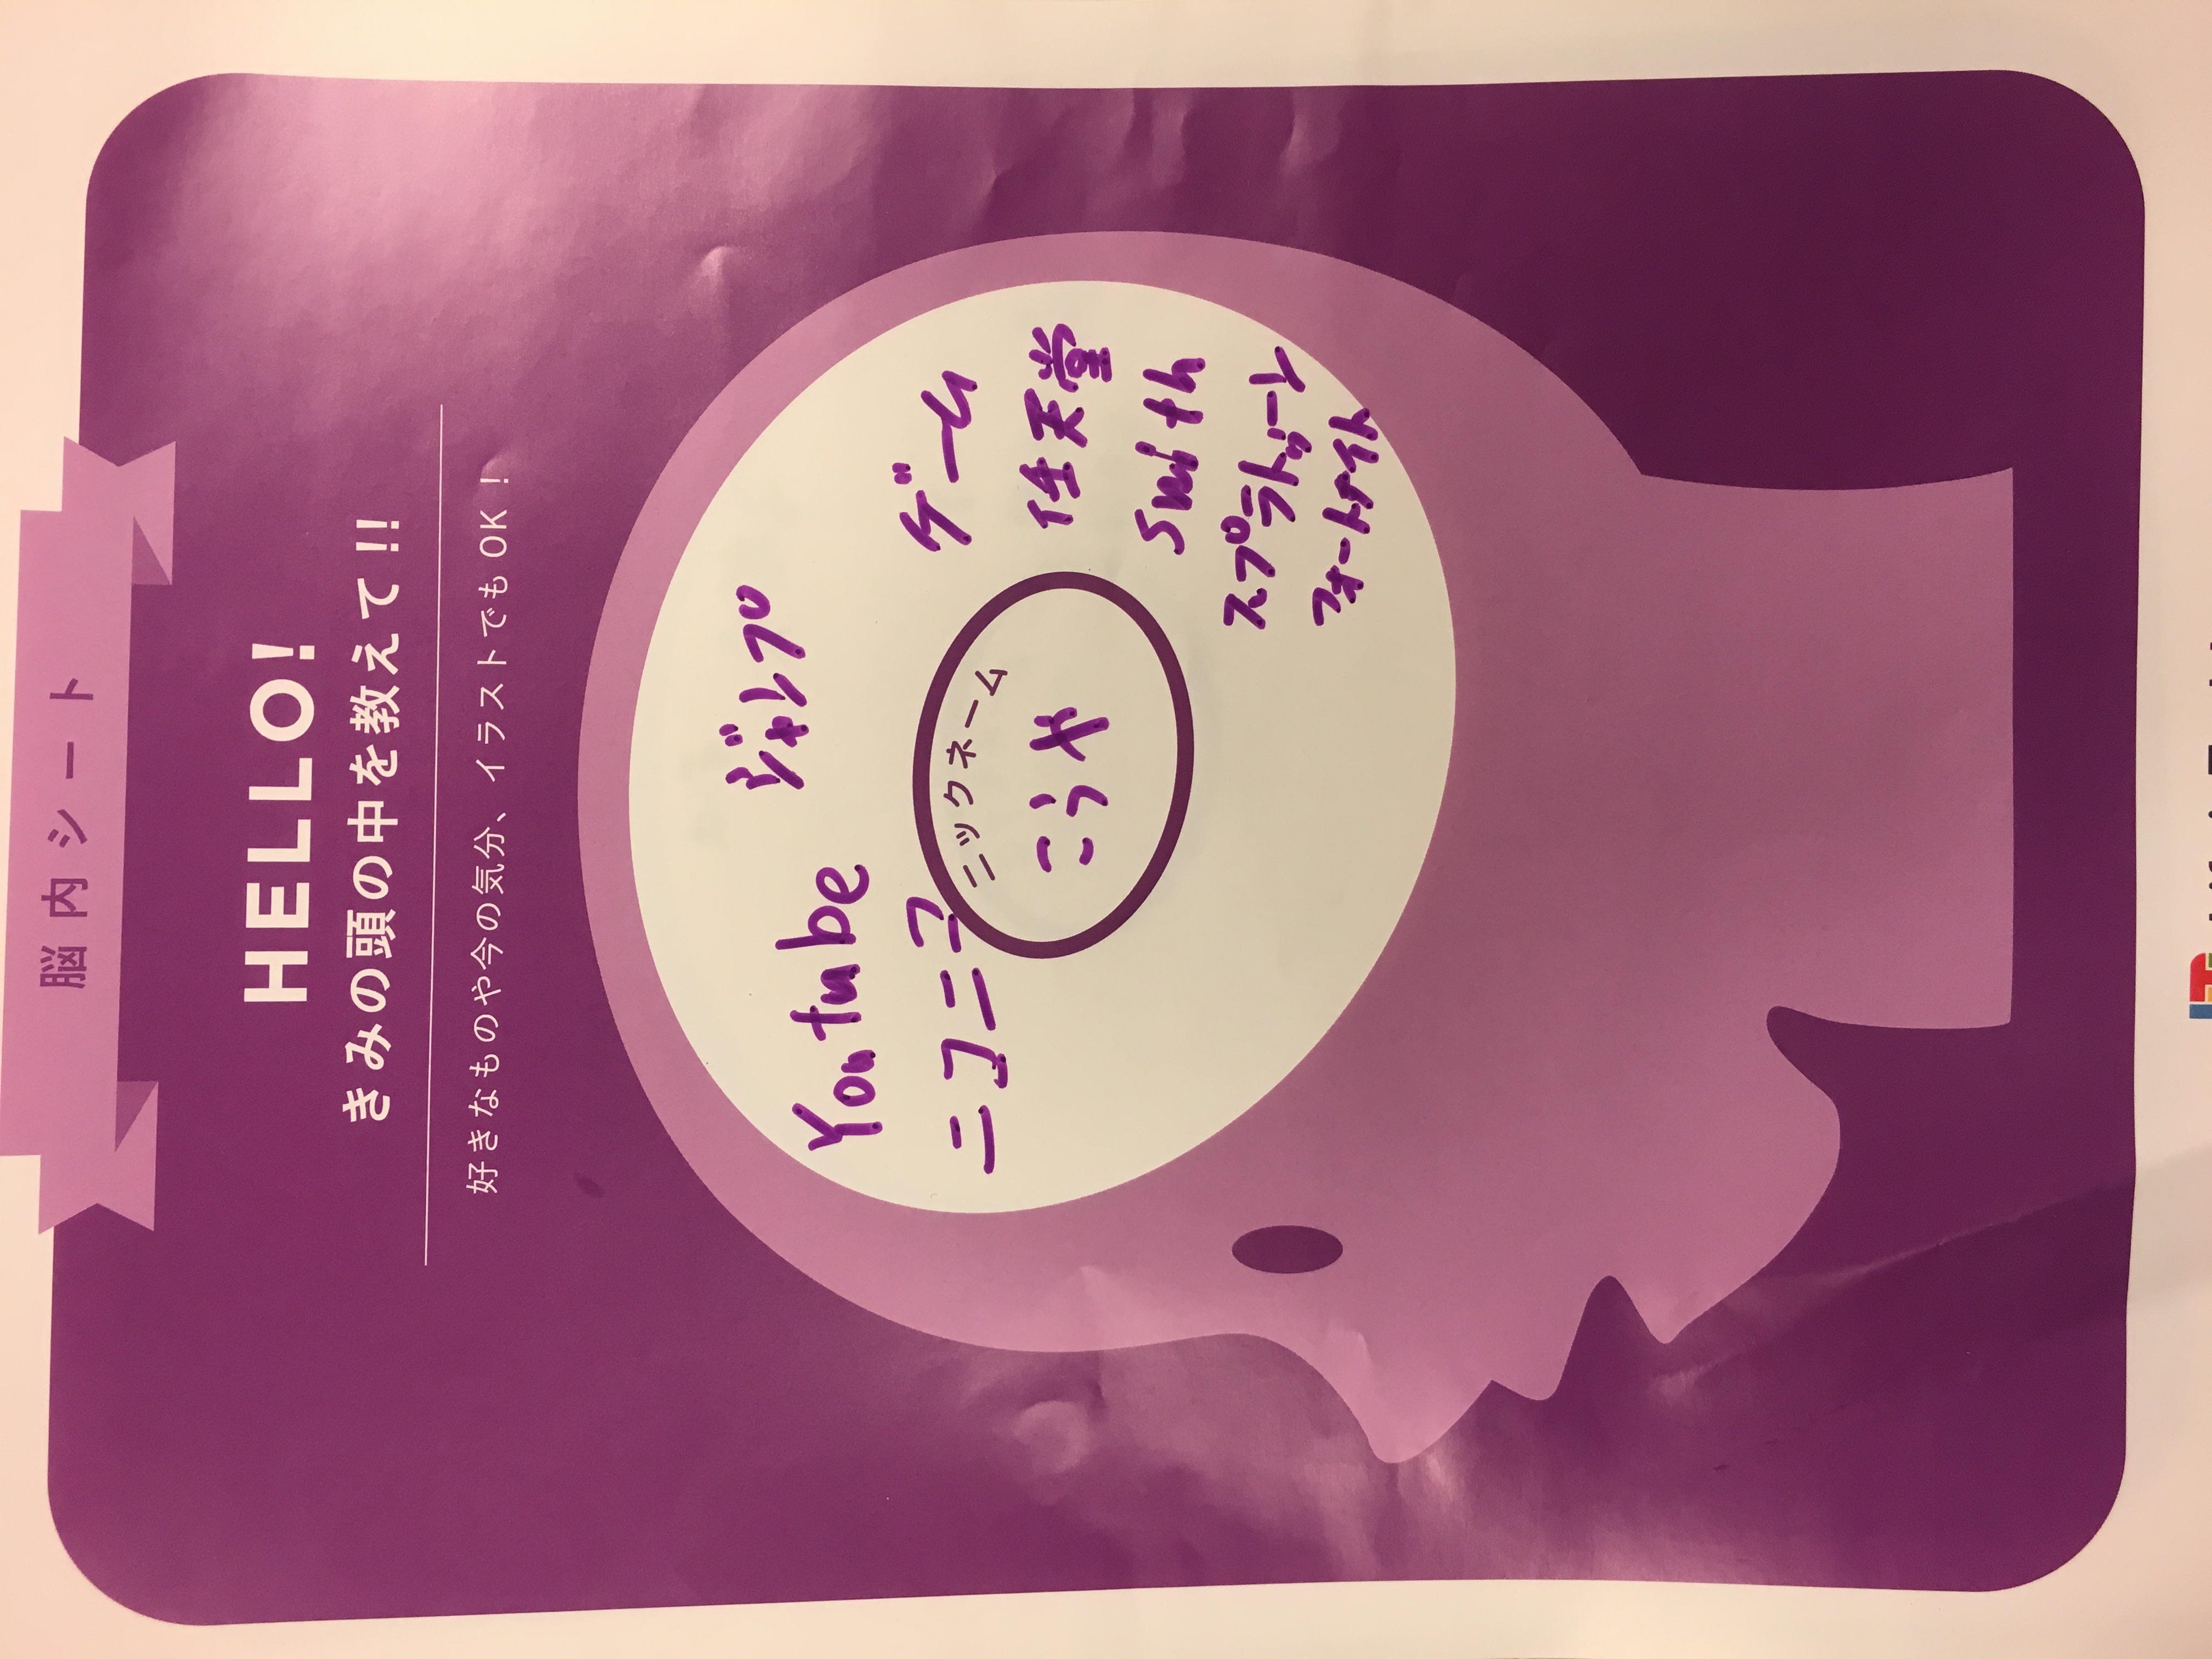 脳内シート
HELLO!
きみの頭の中を教えて!!
好きなものや今の気分、イラストでもOK!
ジャンプ
Youtube
ニコニコ
ニックネーム
こうや
ゲーム
任天堂
smith
スプラトゥーン
フォートナイト